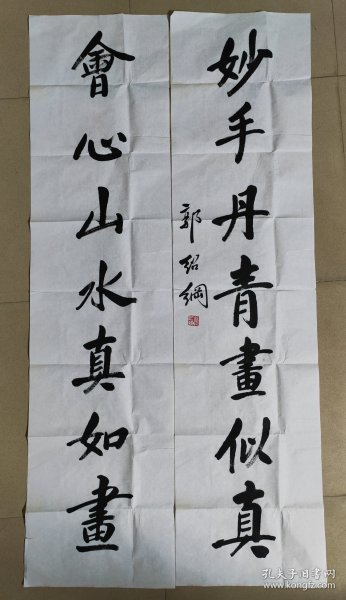 會心山水真如畫
妙手丹青畫似真
郭紹綱
孔夫子旧书网
kongfz.com